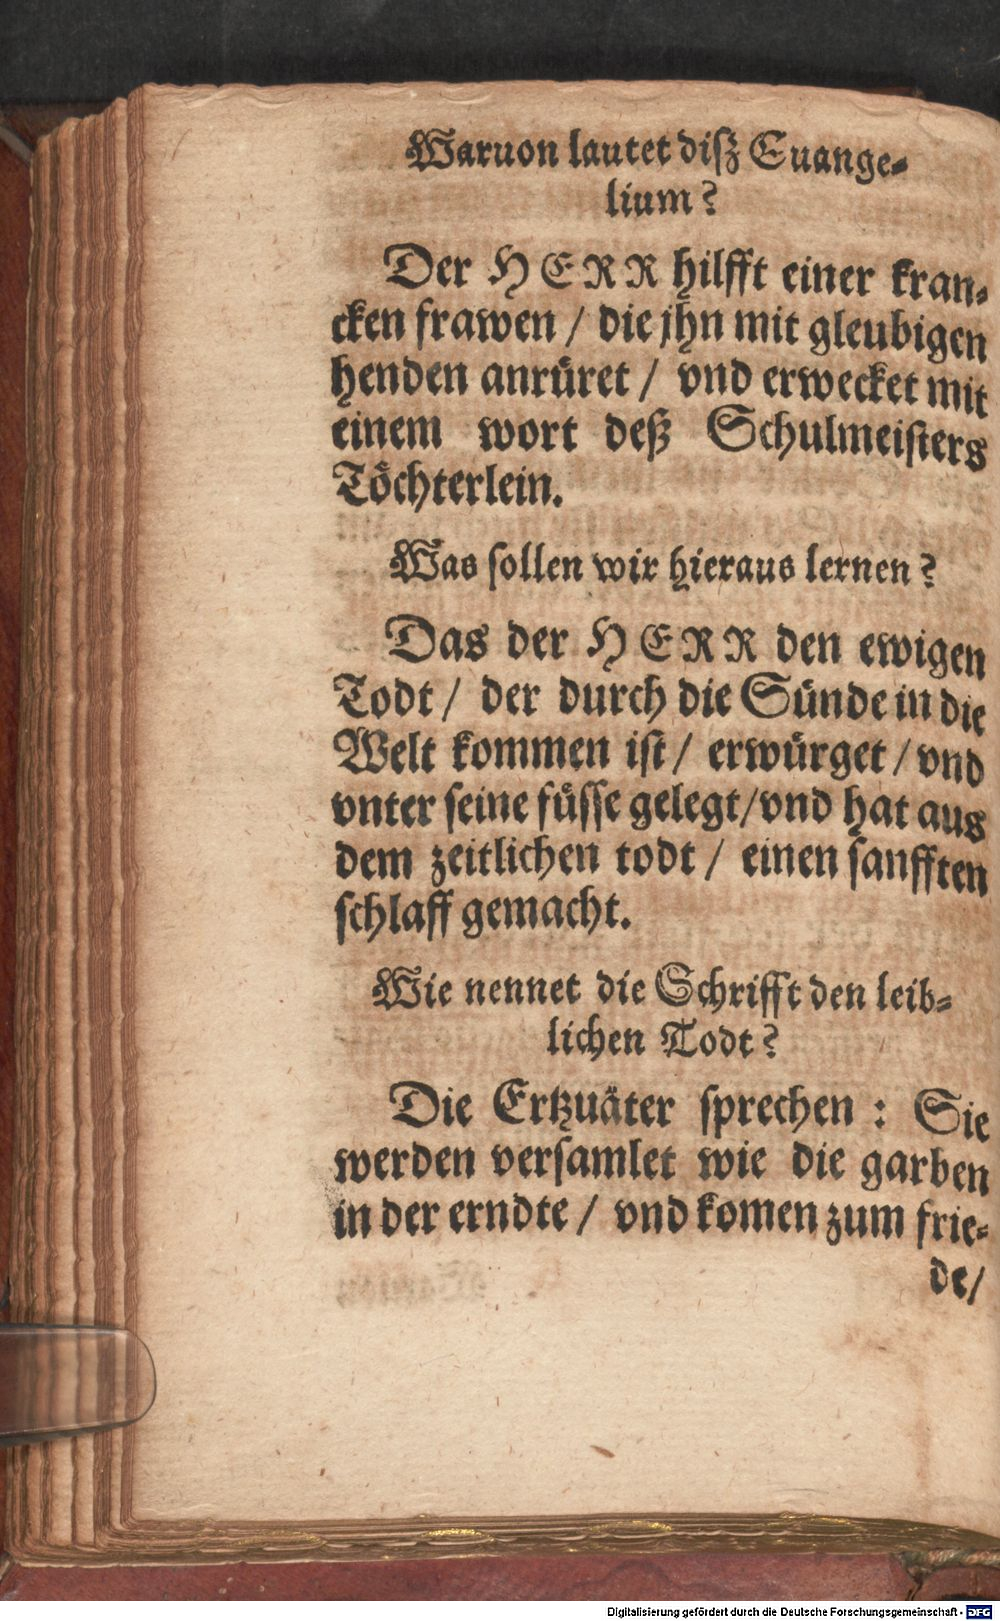 Waruon lautet disz Euange-
lium?
Der HERR hilfft einer kran-
cken frawen / die jhn mit gleubigen
henden anrüret / vnd erwecket mit
einem wort deß Schulmeisters
Töchterlein.
Was sollen wir hieraus lernen?
Das der HERR den ewigen
Todt / der durch die Sünde in die
Welt kommen ist / erwürget / vnd
vnter seine füsse gelegt / vnd hat aus
dem zeitlichen todt / einen sanfften
schlaff gemacht.
Wie nennet die Schrifft den leib-
lichen Todt?
Die Ertzuäter sprechen : Sie
werden versamlet wie die garben
in der erndte / vnd komen zum frie-
de /
Digitalisierung gefördert durch die Deutsche Forschungsgemeinschaft - DFG